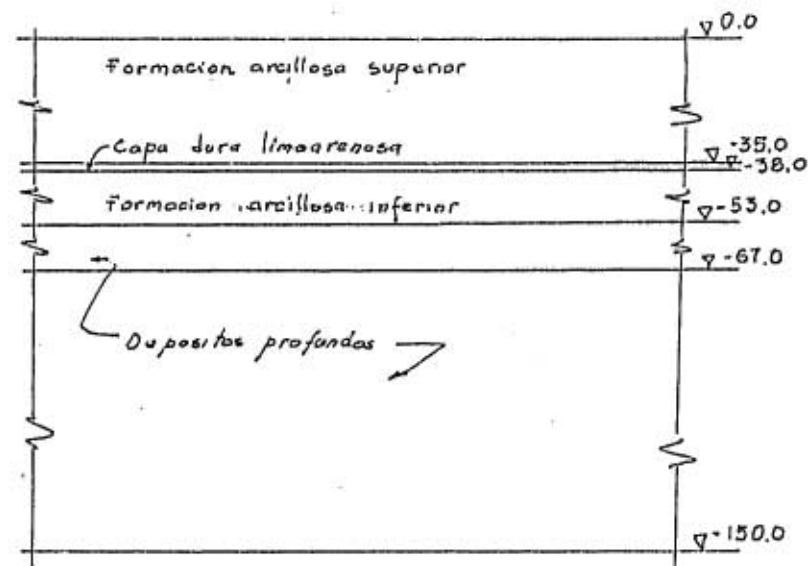 0.0
Formacion arcillosa superior
Capa dura limoarenosa
-35.0
-38.0
Formacion arcillosa inferior
-53.0
-67.0
Depositos profundos
-150.0